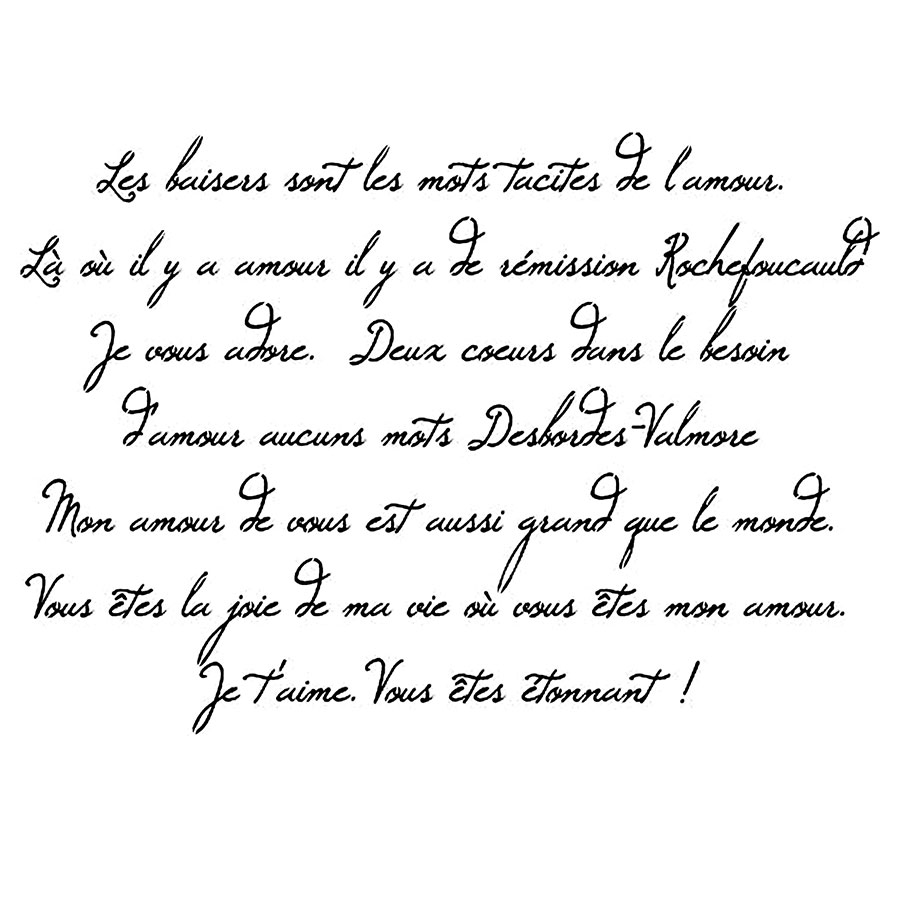 Les baisers sont les mots tacites de l'amour.
Là où il y a amour il y a de rémission Rochefoucauld
Je vous adore. Deux coeurs dans le besoin
d'amour aucuns mots Desbordes-Valmore
Mon amour de vous est aussi grand que le monde.
Vous êtes la joie de ma vie où vous êtes mon amour.
Je t'aime. Vous êtes étonnant !